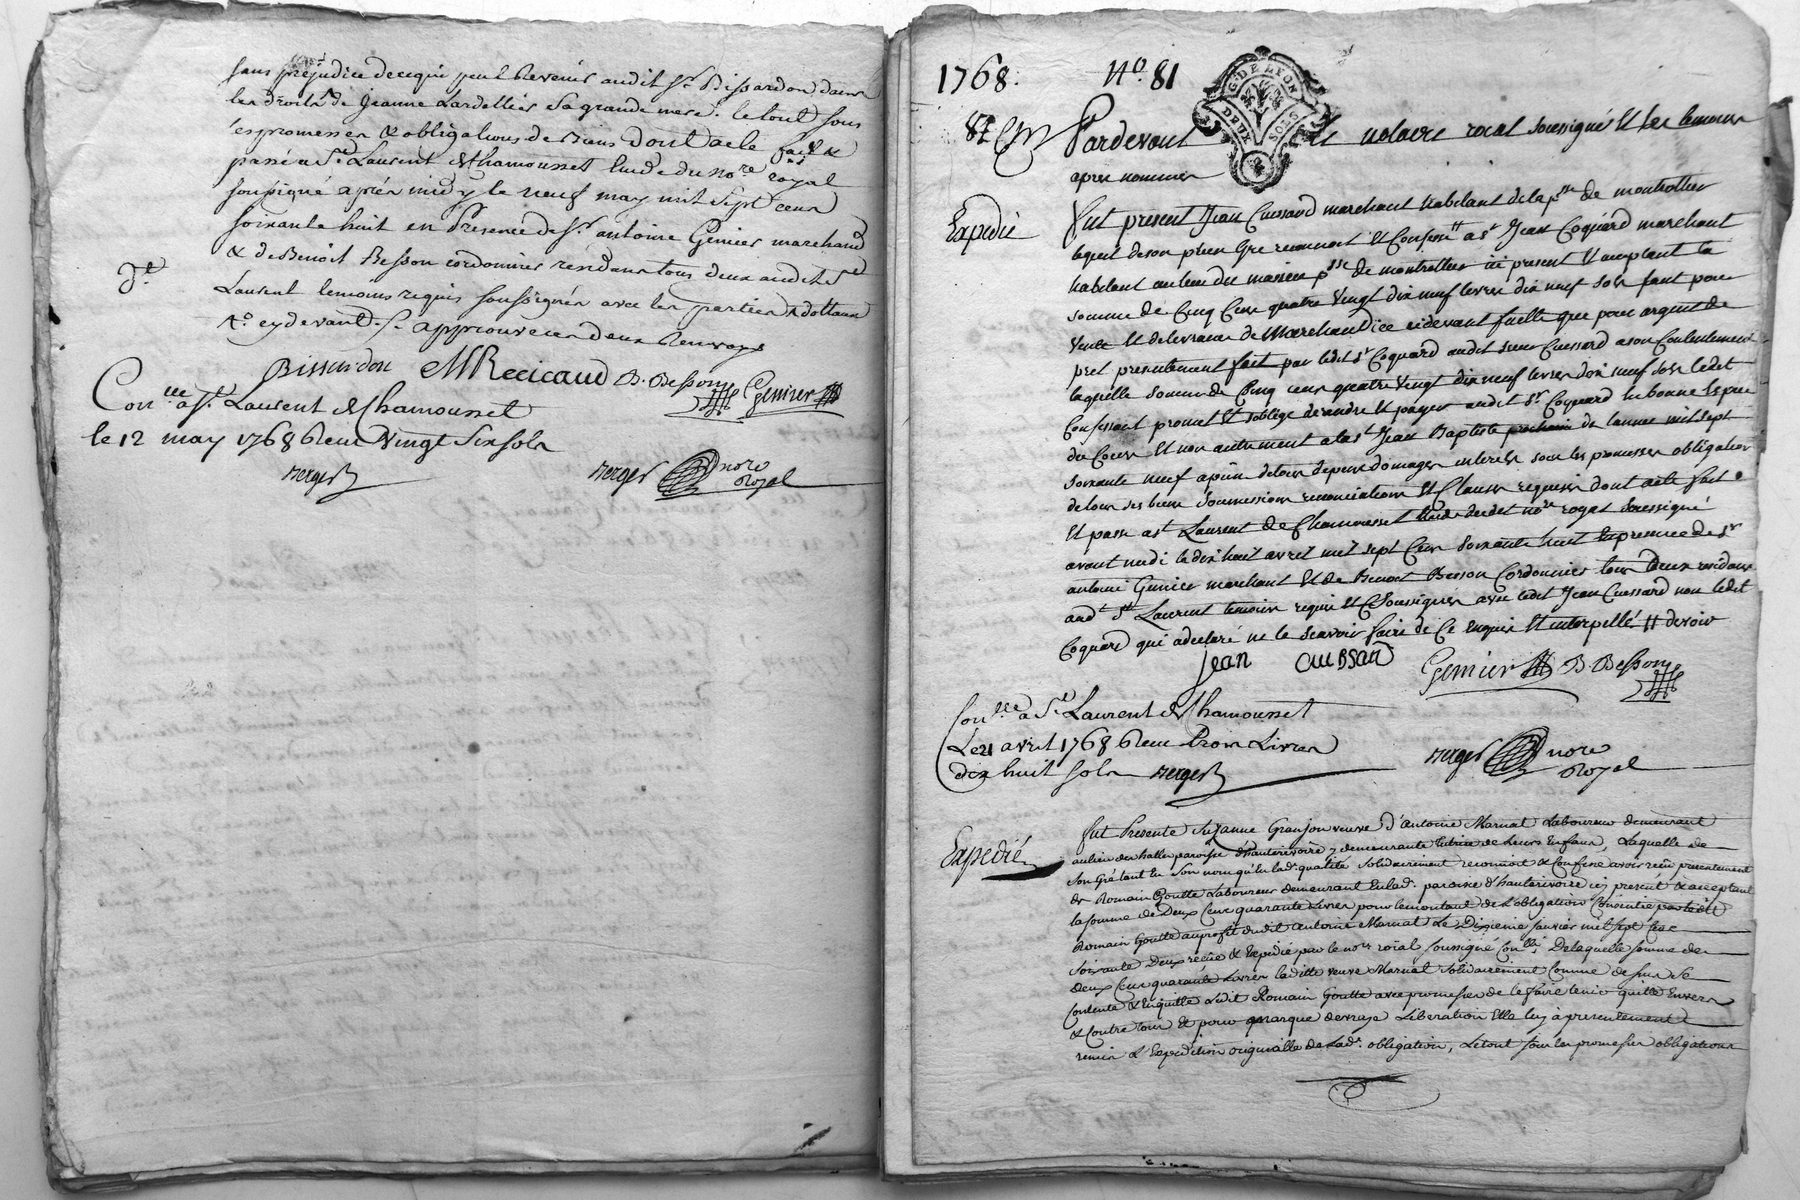 sans préjudice de ce qui peut Revenir audit Sr. Bissardon dans
les droits de Jeanne Lardellier sa grande mere. le tout sous
les promesses & obligations de biens Dont acte fait &
passé a St. Laurent de Chamousset Etude du Nore. royal
soussigné apres midy le neuf may mil sept cens
soixante huit en Presence de Sr. antoine Genier marchand
& de Benoit Besson cordonnier residans tous deux audit St
Laurent temoins requis soussignés avec les parties
cy devant. approuve ces deux Renvoys
Bissardon B. Besson Genier
Conlle a St. Laurent de Chamousset
le 12 may 1768 Recu vingt six sols
Verger Verger nore Royal
1768. No. 81
G. DE LYON
DEUX SOLS
Pardevant le notaire roial soussigné Et les temoins
apres nommes
Expedié
Fut present Jean Cuissard marchand habitant de la psse de montrottier
lequel de son plein Gré reconnoit Et Confesse a sr Jean Coquard marchand
habitant au lieu du psse de montrottier ici present Et acceptant la
somme de Cinq Cens quatre vingt dix neuf livres dix neuf sols tant pour
vente Et delivrance de Marchandice cidevant faitte que pour argent de
pret presentement fait par ledit sr Coquard audit sieur Cuissard a son Contentement
laquelle somme de Cinq cens quatre vingt dix neuf livres dix neuf sols ledit
Confessant promet Et s'oblige de rendre Et payer audit Sr Coquard en bonne Espece
du Cours Et non autrement a la st Jean Baptiste prochain de lannee mil sept
soixante neuf apeine de tous depens domages interets sous les promesses obligation
de tous ses biens soumissions renonciations Et Clauses requises dont acte fait
Et passé a st Laurent de Chamousset Etude dudit nore royal soussigné
avant midi le dix huit avril mil sept Cens soixante huit En presence de sr
antoine Genier marchant Et de Benoit Besson Cordonnier tous deux residans
aud. st Laurent temoins requis Et Soussignés avec ledit Jean Cuissard non ledit
Coquard qui a declaré ne le scavoir faire de Ce Enquis Et interpellé
jean Genier B. Besson
Conlle a St. Laurent de Chamousset
Le 21 avril 1768 Recu trois Livres
dix huit sols Verger Verger nore Royal
Expedié
fut Presente Suzanne Granjon veuve d'antoine Marnat Laboureur demeurant
au lieu des halles paroisse d'hauterivoire y demeurante tutrice de Leurs Enfans, Laquelle de
son Gré tant En son nom qu'En lad. qualité solidairement reconnoit & Confesse avoir reçu presentement
de Romain Goutte Laboureur demeurant En lad. paroisse d'hauterivoire icy present & acceptant
la somme de Deux Cens quarante Livres pour le montant de L'obligation Consentie par ledit
Romain Goutte au profit dudit antoine Marnat Le Dixieme Janvier mil sept Cens
soixante Deux recue & Expedié par le nore roial soussigné Conllé Delaquelle somme de
Deux Cens quarante Livres laditte veuve Marnat solidairement Comme dessus se
Contente & En quitte Ledit Romain Goutte avec promesses de le faire tenir quitte Envers
& Contre tous Et pour marque de vraye Liberation Elle luy à presentement
remis L'Expedition originalle de Lad. obligation, Le tout sous les promesses obligations